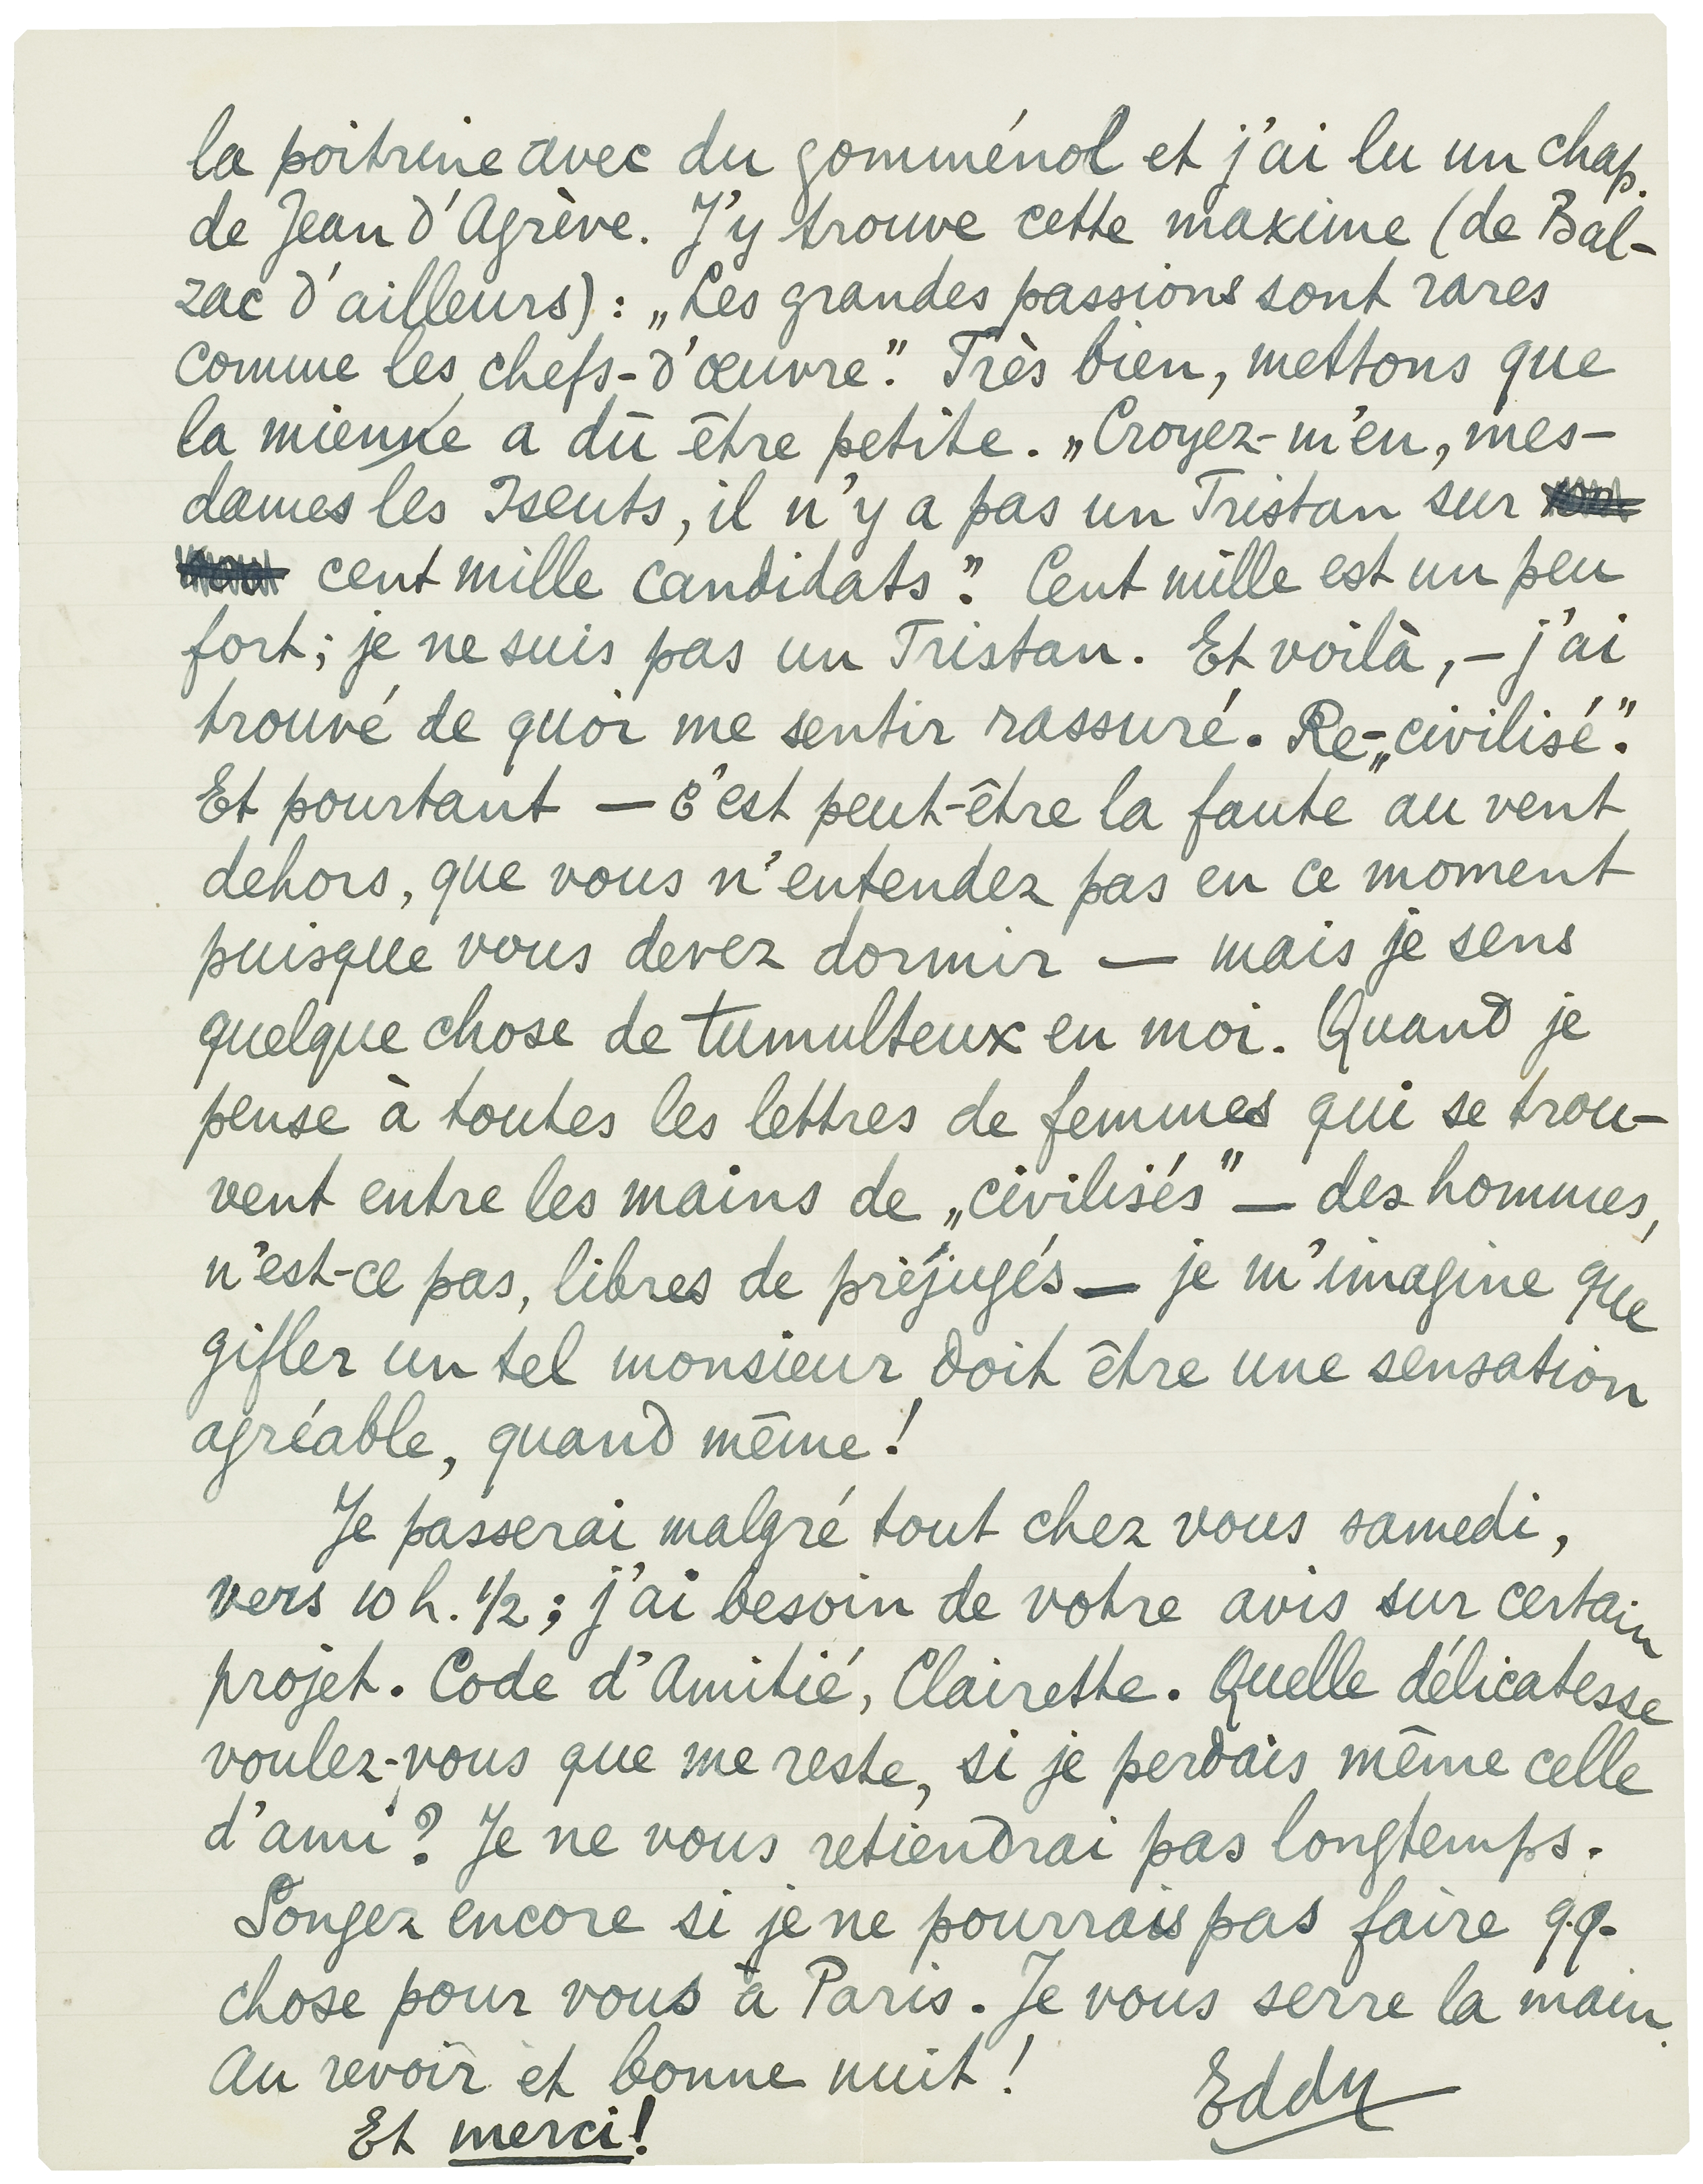 la poitrine avec du goménol et j'ai lu un chap.
de Jean d'Agrève. J'y trouve cette maxime (de Bal-
zac d'ailleurs): „Les grandes passions sont rares
comme les chefs-d'œuvre". Très bien, mettons que
la mienne a dû être petite. „Croyez-m'en, mes-
dames les Iseuts, il n'y a pas un Tristan sur
cent mille candidats". Cent mille est un peu
fort; je ne suis pas un Tristan. Et voilà, — j'ai
trouvé de quoi me sentir rassuré. Re-„civilisé".
Et pourtant — c'est peut-être la faute au vent
dehors, que vous n'entendez pas en ce moment
puisque vous devez dormir — mais je sens
quelque chose de tumulteux en moi. Quand je
pense à toutes les lettres de femmes qui se trou-
vent entre les mains de „civilisés" — des hommes,
n'est-ce pas, libres de préjugés — je m'imagine que
gifler un tel monsieur doit être une sensation
agréable, quand même!
Je passerai malgré tout chez vous samedi,
vers 10 h. 1/2; j'ai besoin de votre avis sur certain
projet. Code d'Amitié, Clairette. Quelle délicatesse
voulez-vous que me reste, si je perdais même celle
d'ami? Je ne vous retiendrai pas longtemps.
Songez encore si je ne pourrais pas faire qq.
chose pour vous à Paris. Je vous serre la main.
Au revoir et bonne nuit! Eddy
Et merci!